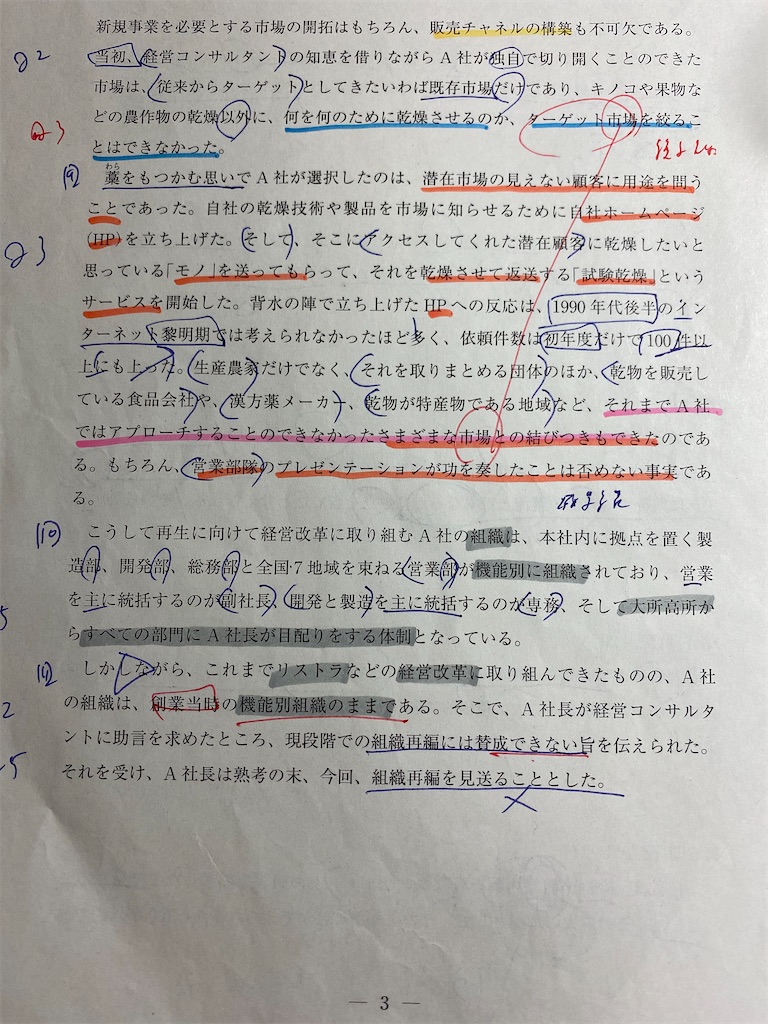 新規事業を必要とする市場の開拓はもちろん、販売チャネルの構築も不可欠である。
当初、経営コンサルタントの知恵を借りながらA社が独自で切り開くことのできた
市場は、従来からターゲットとしてきたいわば既存市場だけであり、キノコや果物な
どの農作物の乾燥以外に、何を何のために乾燥させるのか、ターゲット市場を絞るこ
とはできなかった。
わら
藁をもつかむ思いでA社が選択したのは、潜在市場の見えない顧客に用途を問う
ことであった。自社の乾燥技術や製品を市場に知らせるために自社ホームページ
(HP)を立ち上げた。そして、そこにアクセスしてくれた潜在顧客に乾燥したいと
思っている「モノ」を送ってもらって、それを乾燥させて返送する「試験乾燥」という
サービスを開始した。背水の陣で立ち上げたHPへの反応は、1990年代後半のイン
ターネット黎明期では考えられなかったほど多く、依頼件数は初年度だけで100件以
上にも上った。生産農家だけでなく、それを取りまとめる団体のほか、乾物を販売し
ている食品会社や、漢方薬メーカー、乾物が特産物である地域など、それまでA社
ではアプローチすることのできなかったさまざまな市場との結びつきもできたのであ
る。もちろん、営業部隊のプレゼンテーションが功を奏したことは否めない事実であ
る。
こうして再生に向けて経営改革に取り組むA社の組織は、本社内に拠点を置く製
造部、開発部、総務部と全国7地域を束ねる営業部が機能別に組織されており、営業
を主に統括するのが副社長、開発と製造を主に統括するのが専務、そして大所高所か
らすべての部門にA社長が目配りをする体制となっている。
しかしながら、これまでリストラなどの経営改革に取り組んできたものの、A社
の組織は、創業当時の機能別組織のままである。そこで、A社長が経営コンサルタ
ントに助言を求めたところ、現段階での組織再編には賛成できない旨を伝えられた。
それを受け、A社長は熟考の末、今回、組織再編を見送ることとした。
― 3 ―